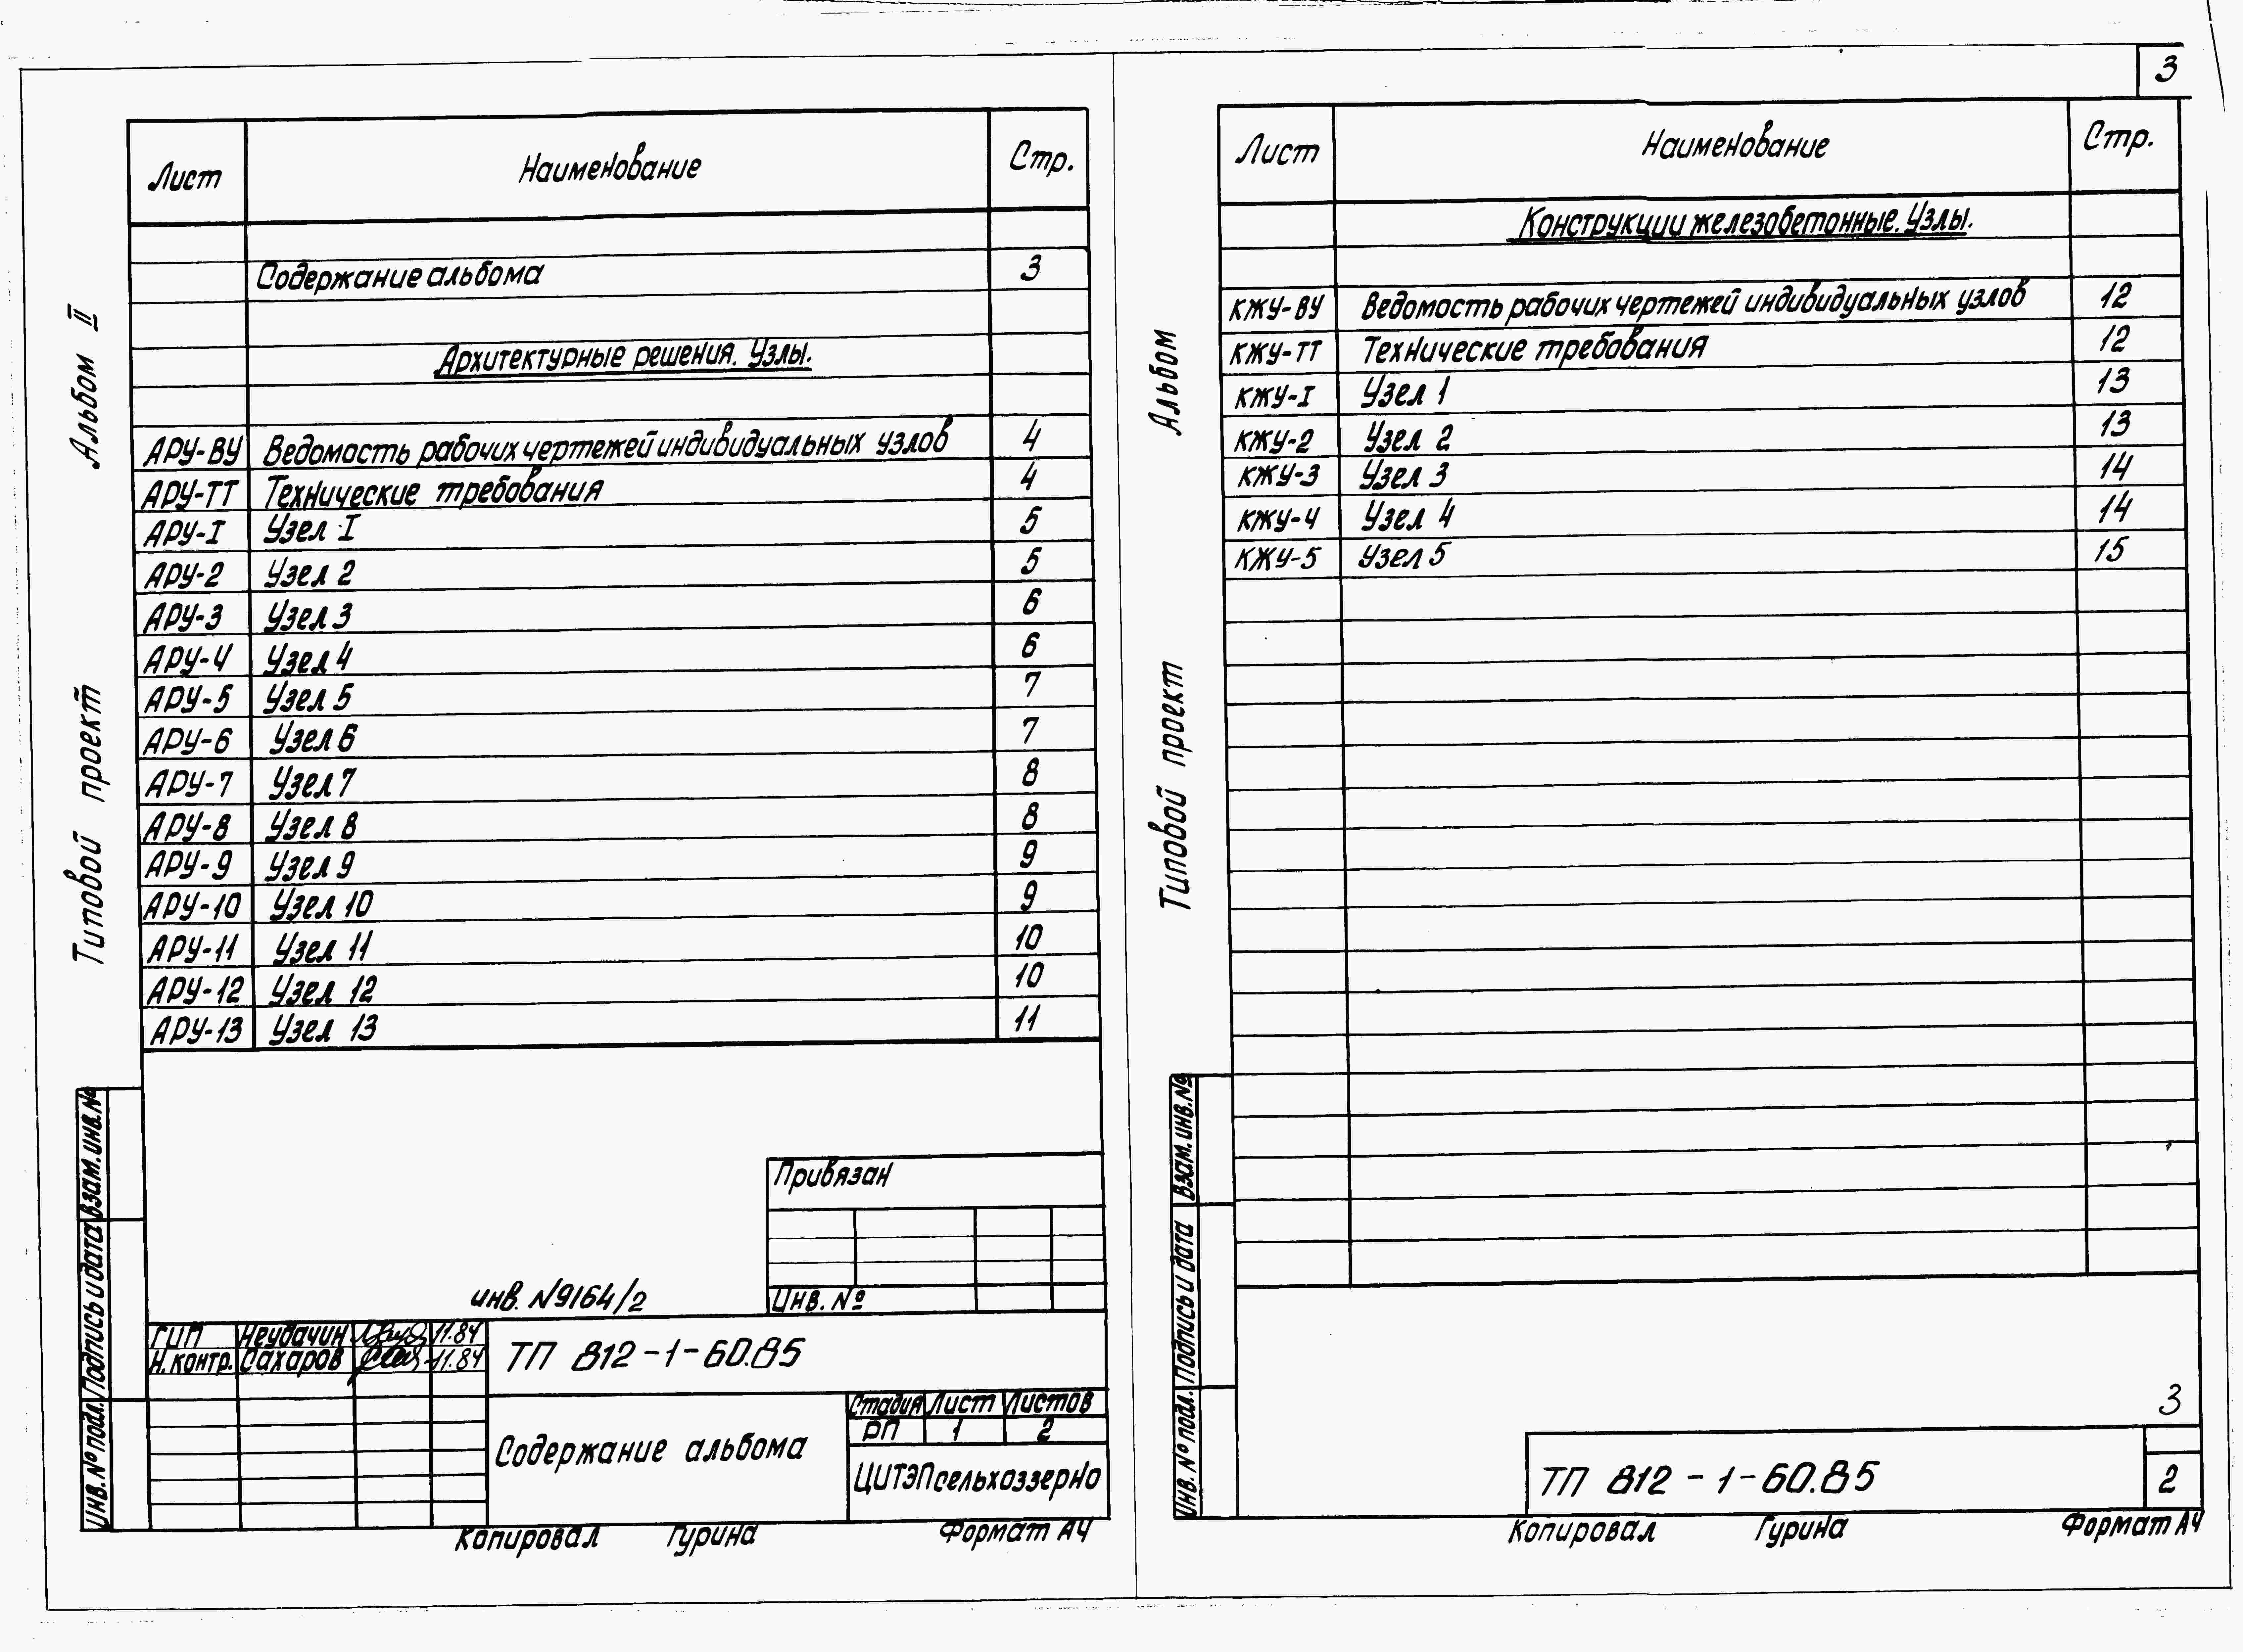 3
Альбом II
Типовой проект
Лист Наименование Стр.
Содержание альбома 3
Архитектурные решения. Узлы.
АРУ-ВУ Ведомость рабочих чертежей индивидуальных узлов 4
АРУ-ТТ Технические требования 4
АРУ-I Узел I 5
АРУ-2 Узел 2 5
АРУ-3 Узел 3 6
АРУ-4 Узел 4 6
АРУ-5 Узел 5 7
АРУ-6 Узел 6 7
АРУ-7 Узел 7 8
АРУ-8 Узел 8 8
АРУ-9 Узел 9 9
АРУ-10 Узел 10 9
АРУ-11 Узел 11 10
АРУ-12 Узел 12 10
АРУ-13 Узел 13 11
Взам. инв. №
Подпись и дата
Инв. № подл.
Привязан
Инв. №
инв. N9164/2
ГИП Неудачин 11.84
Н. контр. Сахаров 11.84
ТП 812-1-60.85
Содержание альбома
Стадия Лист Листов
РП 1 2
ЦИТЭПсельхоззерно
Копировал Гурина Формат А4
Альбом
Типовой проект
Лист Наименование Стр.
Конструкции железобетонные. Узлы.
КЖУ-ВУ Ведомость рабочих чертежей индивидуальных узлов 12
КЖУ-ТТ Технические требования 12
КЖУ-I Узел 1 13
КЖУ-2 Узел 2 13
КЖУ-3 Узел 3 14
КЖУ-4 Узел 4 14
КЖУ-5 Узел 5 15
Взам. инв. №
Подпись и дата
Инв. № подл.
3
ТП 812-1-60.85
2
Копировал Гурина Формат А4